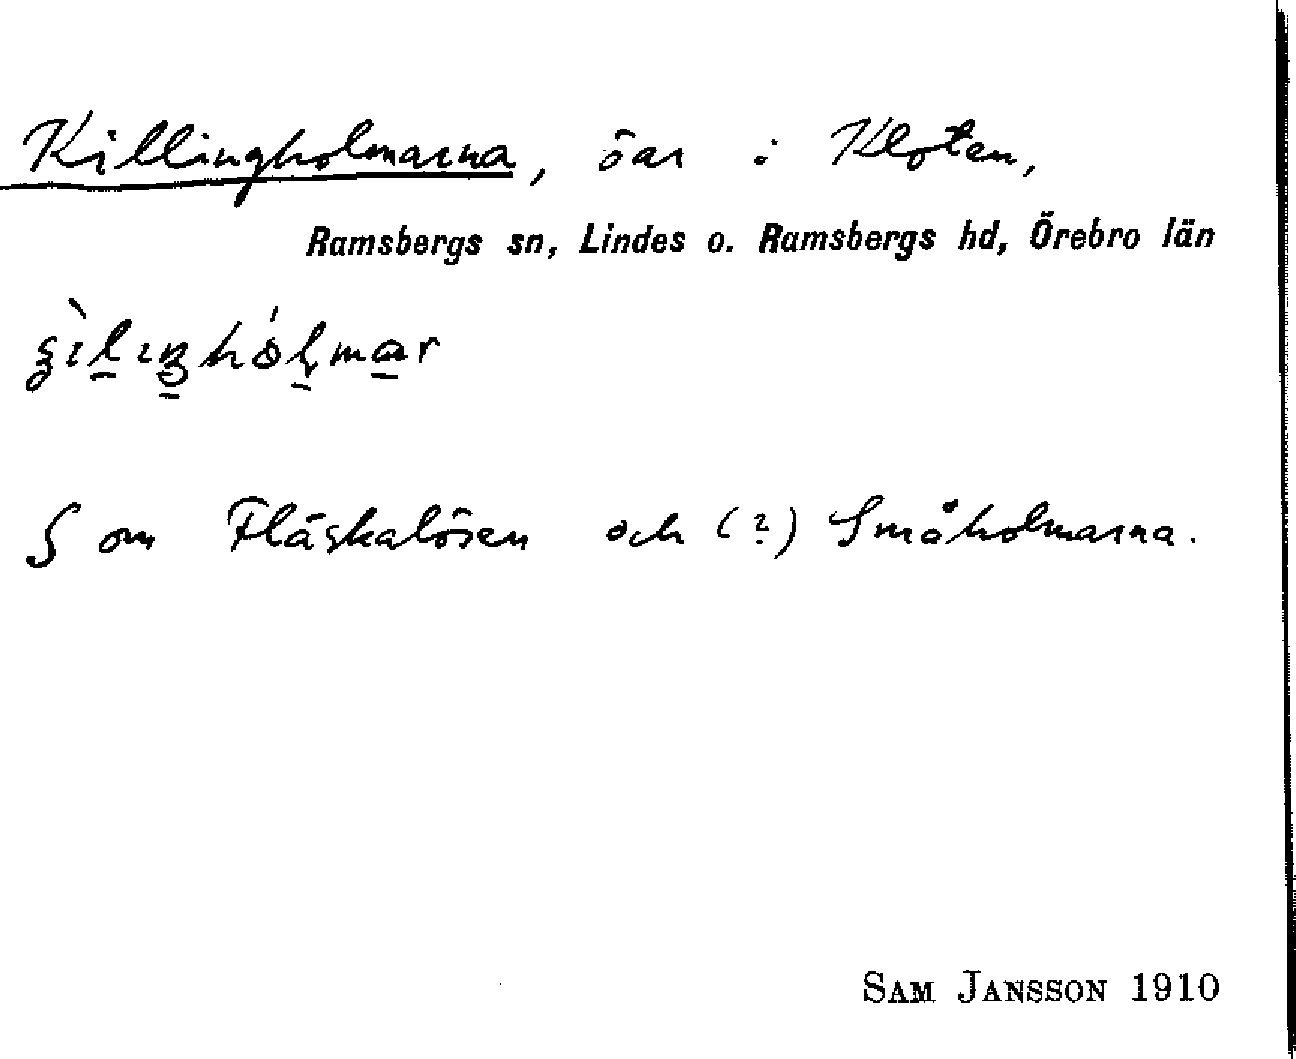 Killingholmarna, öar i Kloten,
Ramsbergs sn, Lindes o. Ramsbergs hd, Örebro län
S om Fläskalösen och (?) Småholmarna.
SAM JANSSON 1910